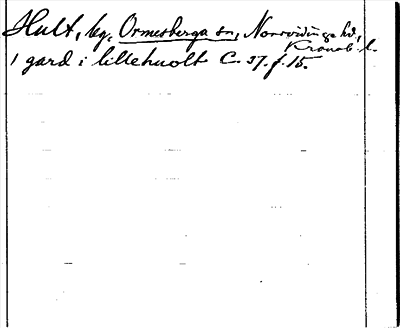 Hult, by, Ormesberga sn, Norrvidinge hd,
Kronob. l.
1 gard i lillehuolt C. 37. f. 15.